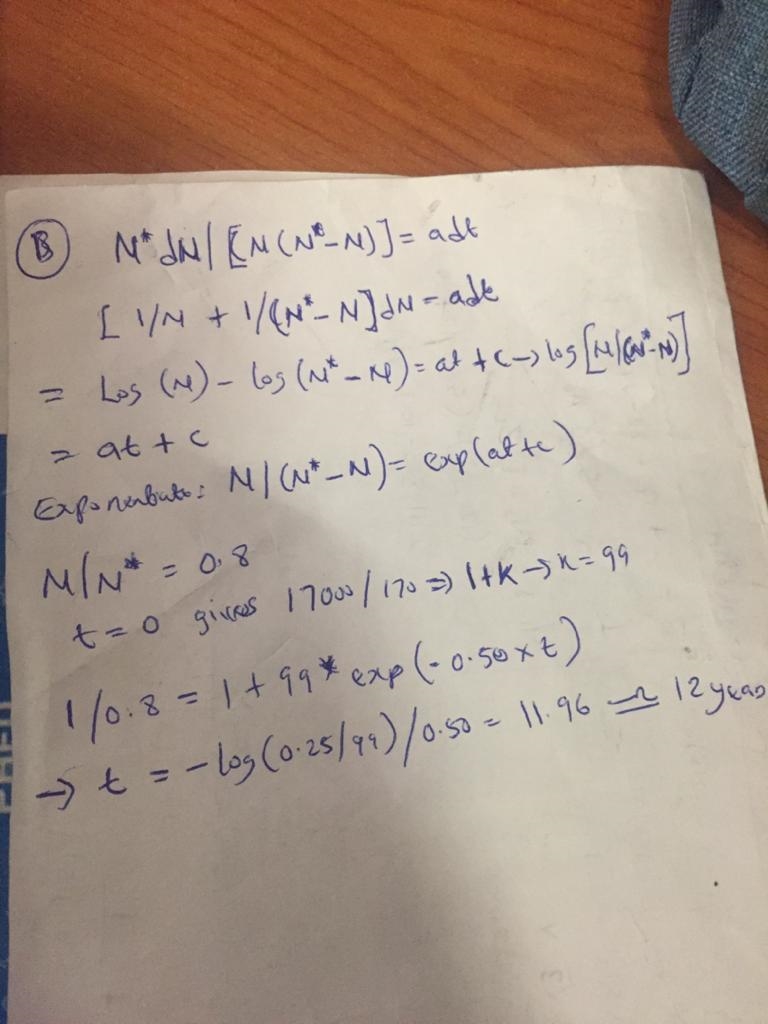 B N* dN / [N (N* - N)] = adt
[ 1/N + 1/(N* - N] dN = adt
= Log (N) - log (N* - N) = at + c → log [N/(N* - N)]
= at + c
Exponentiate: N / (N* - N) = exp(at + c)
N/N* = 0.8
t = 0 gives 17000 / 170 ⇒ 1+K → K = 99
1/0.8 = 1 + 99 * exp (- 0.50 x t)
→ t = - log (0.25/99) / 0.50 = 11.96 ≃ 12 years